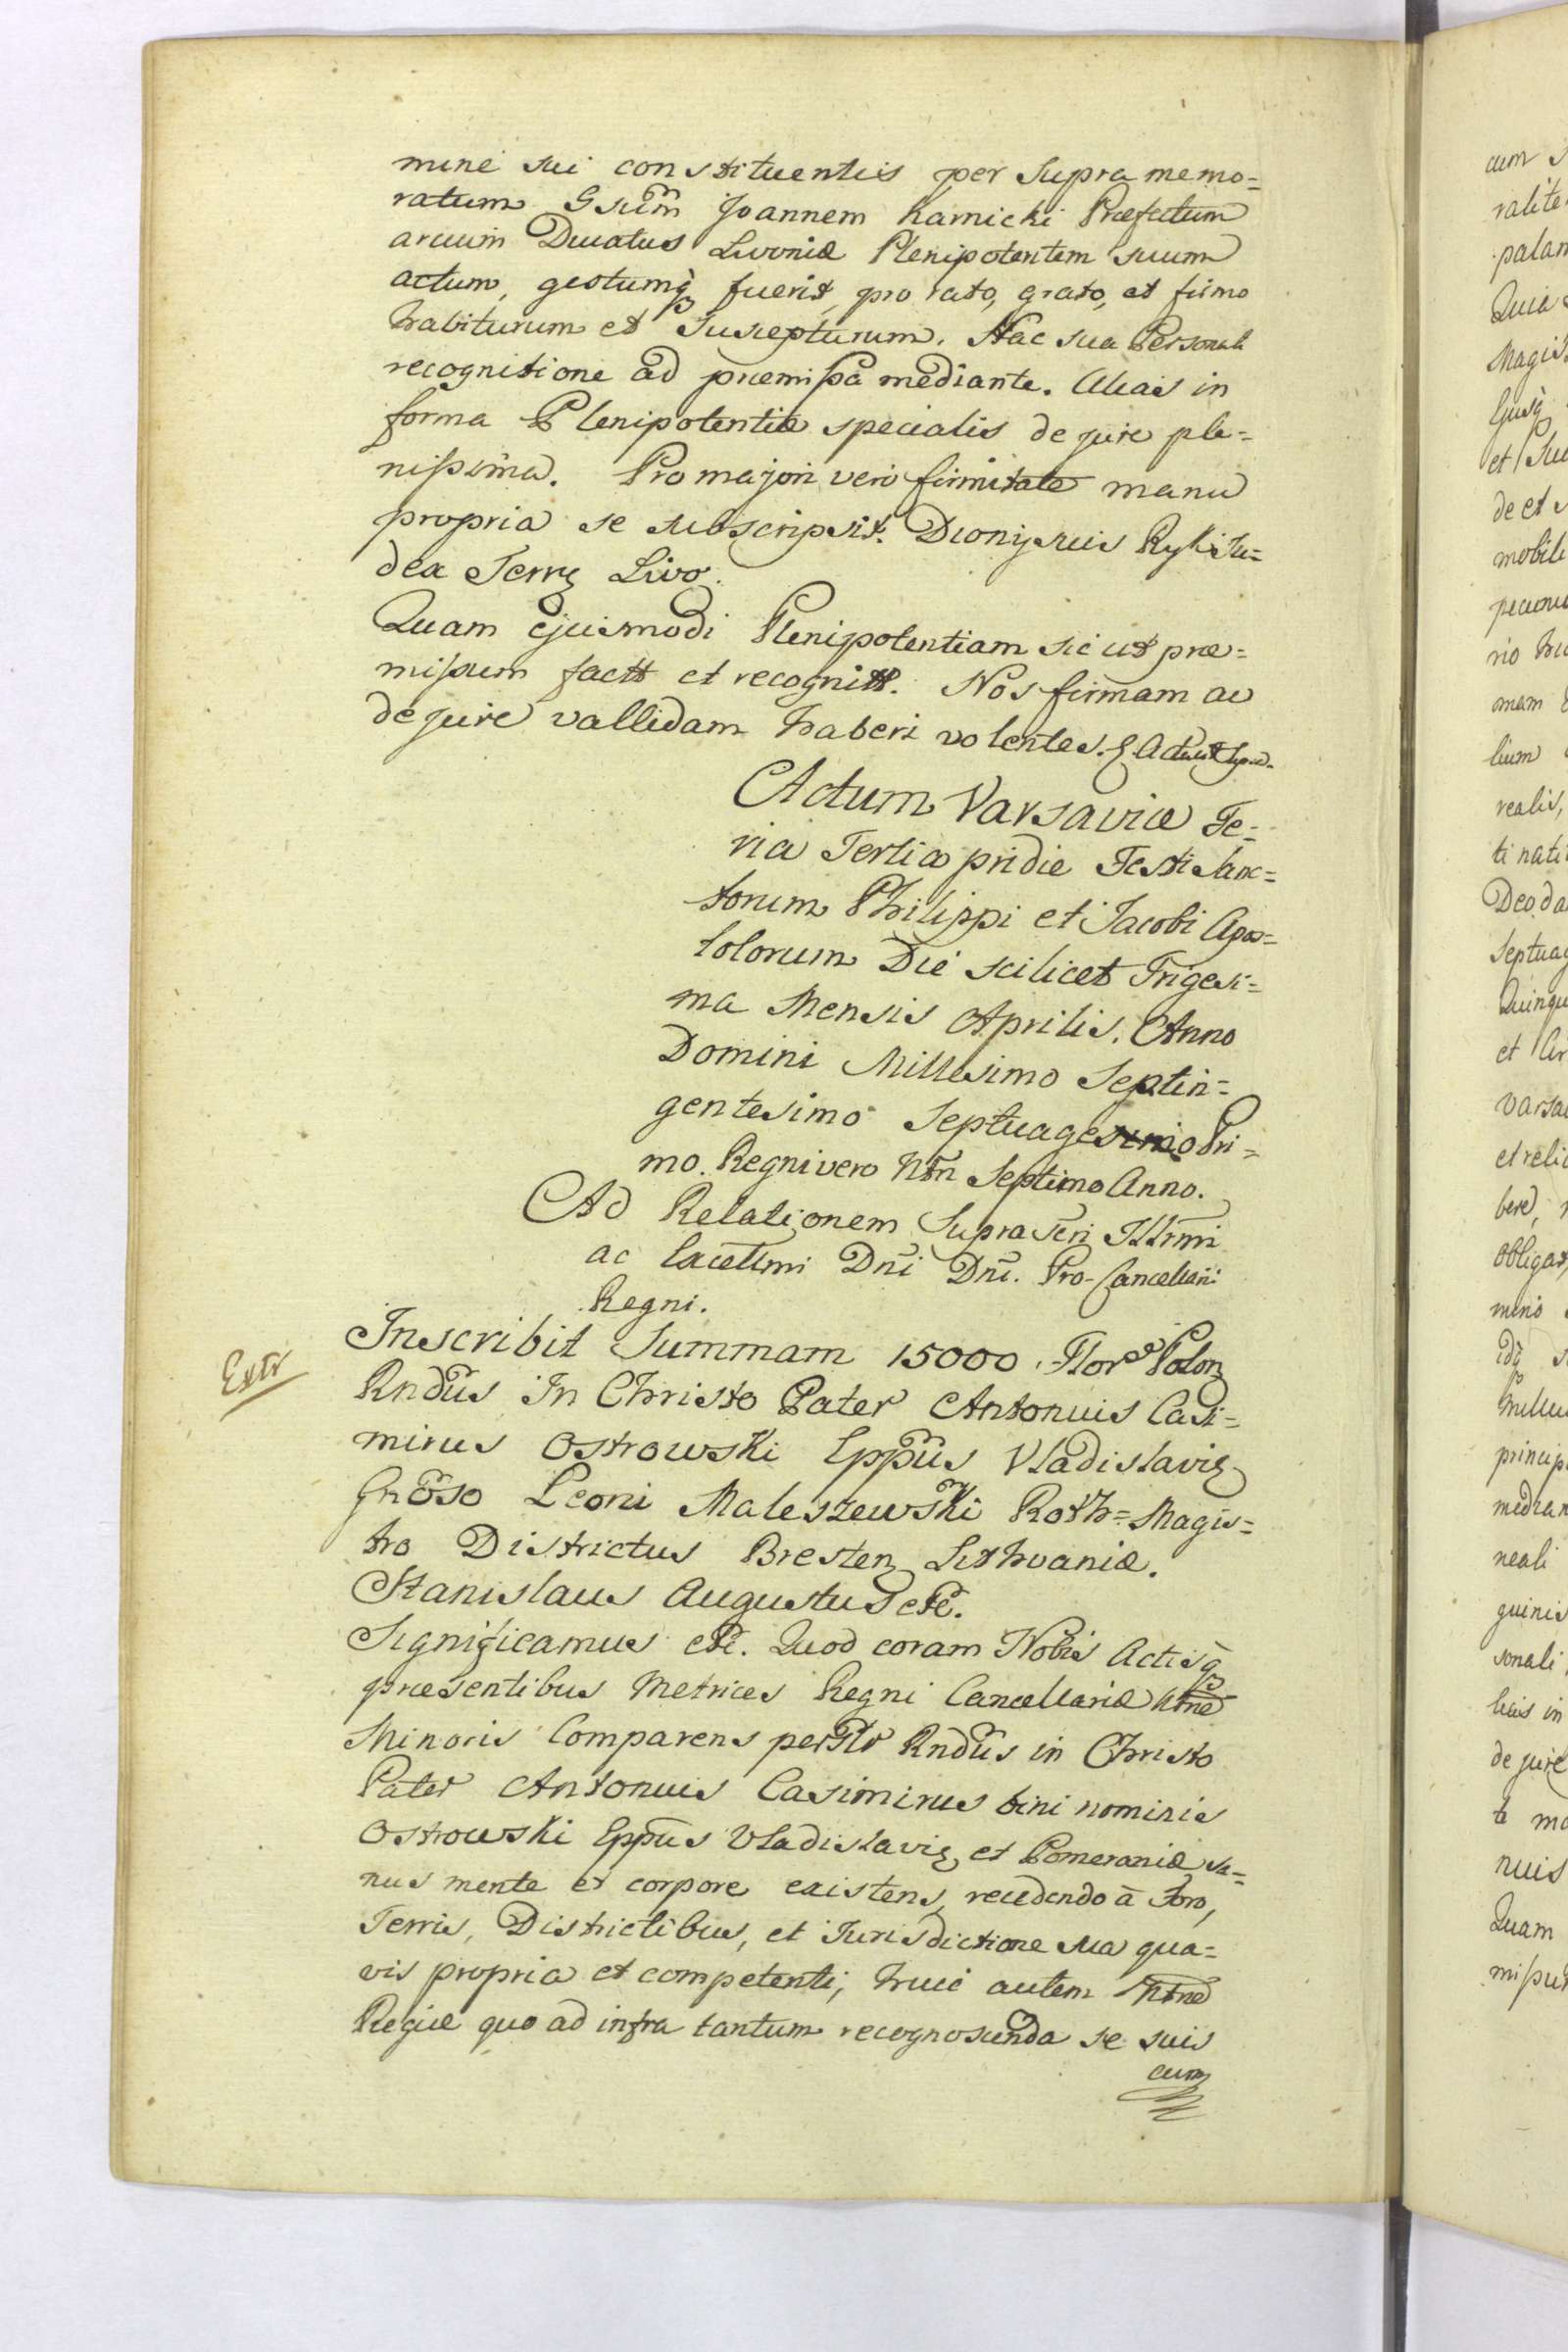 mine sui constituentis per Supra memo=
ratum Gsum Joannem Karnicki Præfectum
arcium Ducatus Livoniæ Plenipotentem suum
actum, gestumq̀ fuerit, pro rato, grato, et firmo
habiturum et Suscepturum. Hac sua Personali
recognitione ad præmissa mediante. Alias in
forma Plenipotentiæ specialis de jure ple=
nissima. Pro majori vero firmitate manu
propria se subscripsit. Dionysius Ryk Ju=
dex Terrę Livo.
Quam ejusmodi Plenipotentiam sic ut præ=
missum factt et recognitt. Nos firmam ac
de jure vallidam haberi volentes.
Actum Varsaviæ Fe=
ria Tertia pridie Festi Sanc=
torum Philippi et Jacobi Apos=
tolorum Die scilicet Trigesi=
ma Mensis Aprilis. Anno
Domini Millesimo Septin=
gentesimo Septuagesimo Pri=
mo. Regni vero Ntri Septimo Anno.
Ad Relationem Supra Scri Illrmi
ac Excellmi Dni Dni. Pro-Cancellarii
Regni.
Extr
Inscribit Summam 15000. Flor. Polon
Rndus In Christo Pater Antonius Casi=
mirus Ostrowski Eppus Vladislavię
Gnoso Leoni Maleszewski Roth=Magis=
tro Districtus Bresten Lithvaniæ.
Stanislaus Augustus etc.
Significamus etc. Quod coram Nobis Actisq̀
præsentibus Metrices Regni Cancellariæ Ntræ
Minoris Comparens perIllr Rndus in Christo
Pater Antonius Casimirus bini nominis
Ostrowski Eppus Vladislavię et Pomeraniæ sa=
nus mente et corpore existens, recedendo à Foro,
Terris, Districtibus, et Jurisdictione sua qua=
vis propria et competenti, huic autem Ntræ
Regiæ quo ad infra tantum recognoscenda se suis
cum